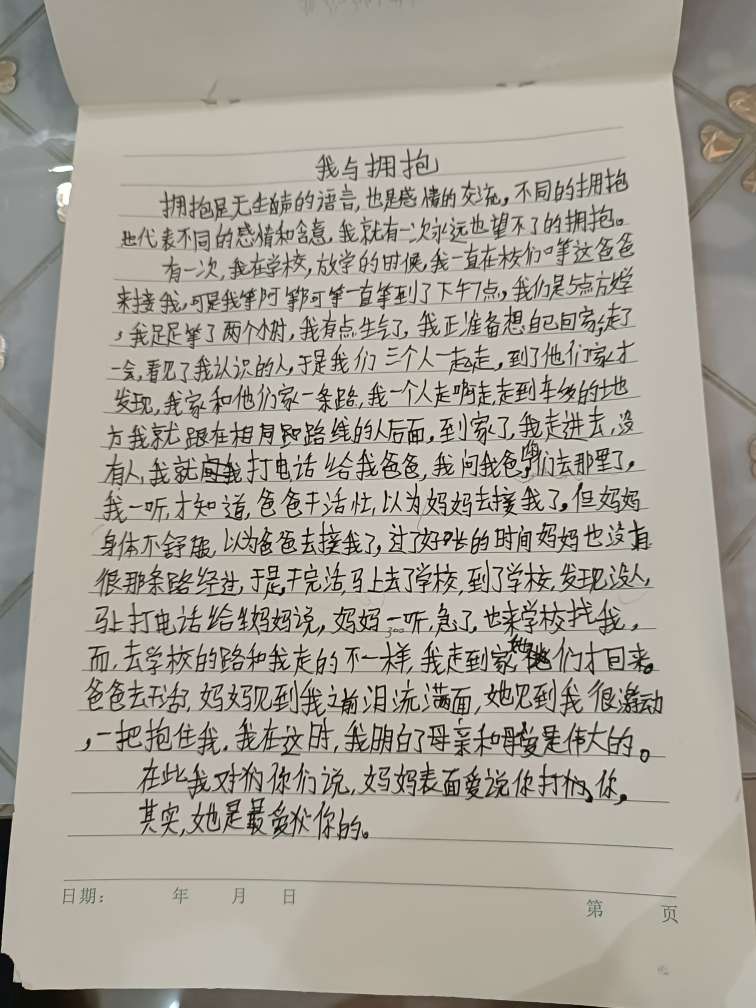 我与拥抱
拥抱是无生声的语言,也是感情的交流,不同的拥抱
也代表不同的感情和含意,我就有一次永远也望不了的拥抱。
有一次,我在学校,放学的时候,我一直在校们口等这爸爸
来接我,可是我等阿等阿等一直等到了下午7点,我们是5点方学
,我足足等了两个小时,我有点生气了,我正准备想自己回家,走了
一会,看见了我认识的人,于是我们三个人一起走,到了他们家才
发现,我家和他们家一条路,我一个人走啊走,走到车多的地
方我就跟在相同路线的人后面,到家了,我走进去,没
有人,我就打电话给我爸爸,我问我爸,们去那里了,
我一听,才知道,爸爸干活忙,以为妈妈去接我了。但妈妈
身体不舒服,以为爸爸去接我了,过了好长的时间妈妈也没有
很那条路经过,于是,干完活,马上去了学校,到了学校,发现没人,
马上打电话给妈妈说,妈妈一听,急了,也来学校找我,
300
而,去学校的路和我走的不一样,我走到家,她们才回来。
爸爸去干活,妈妈见到我之前泪流满面,她见到我很激动
,一把抱住我,我在这时,我明白了母亲和母爱是伟大的。
在此我对你们说,妈妈表面爱说你打你,
其实,她是最爱你的。
日期: 年 月 日
第 页